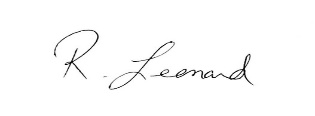 R. Leonard